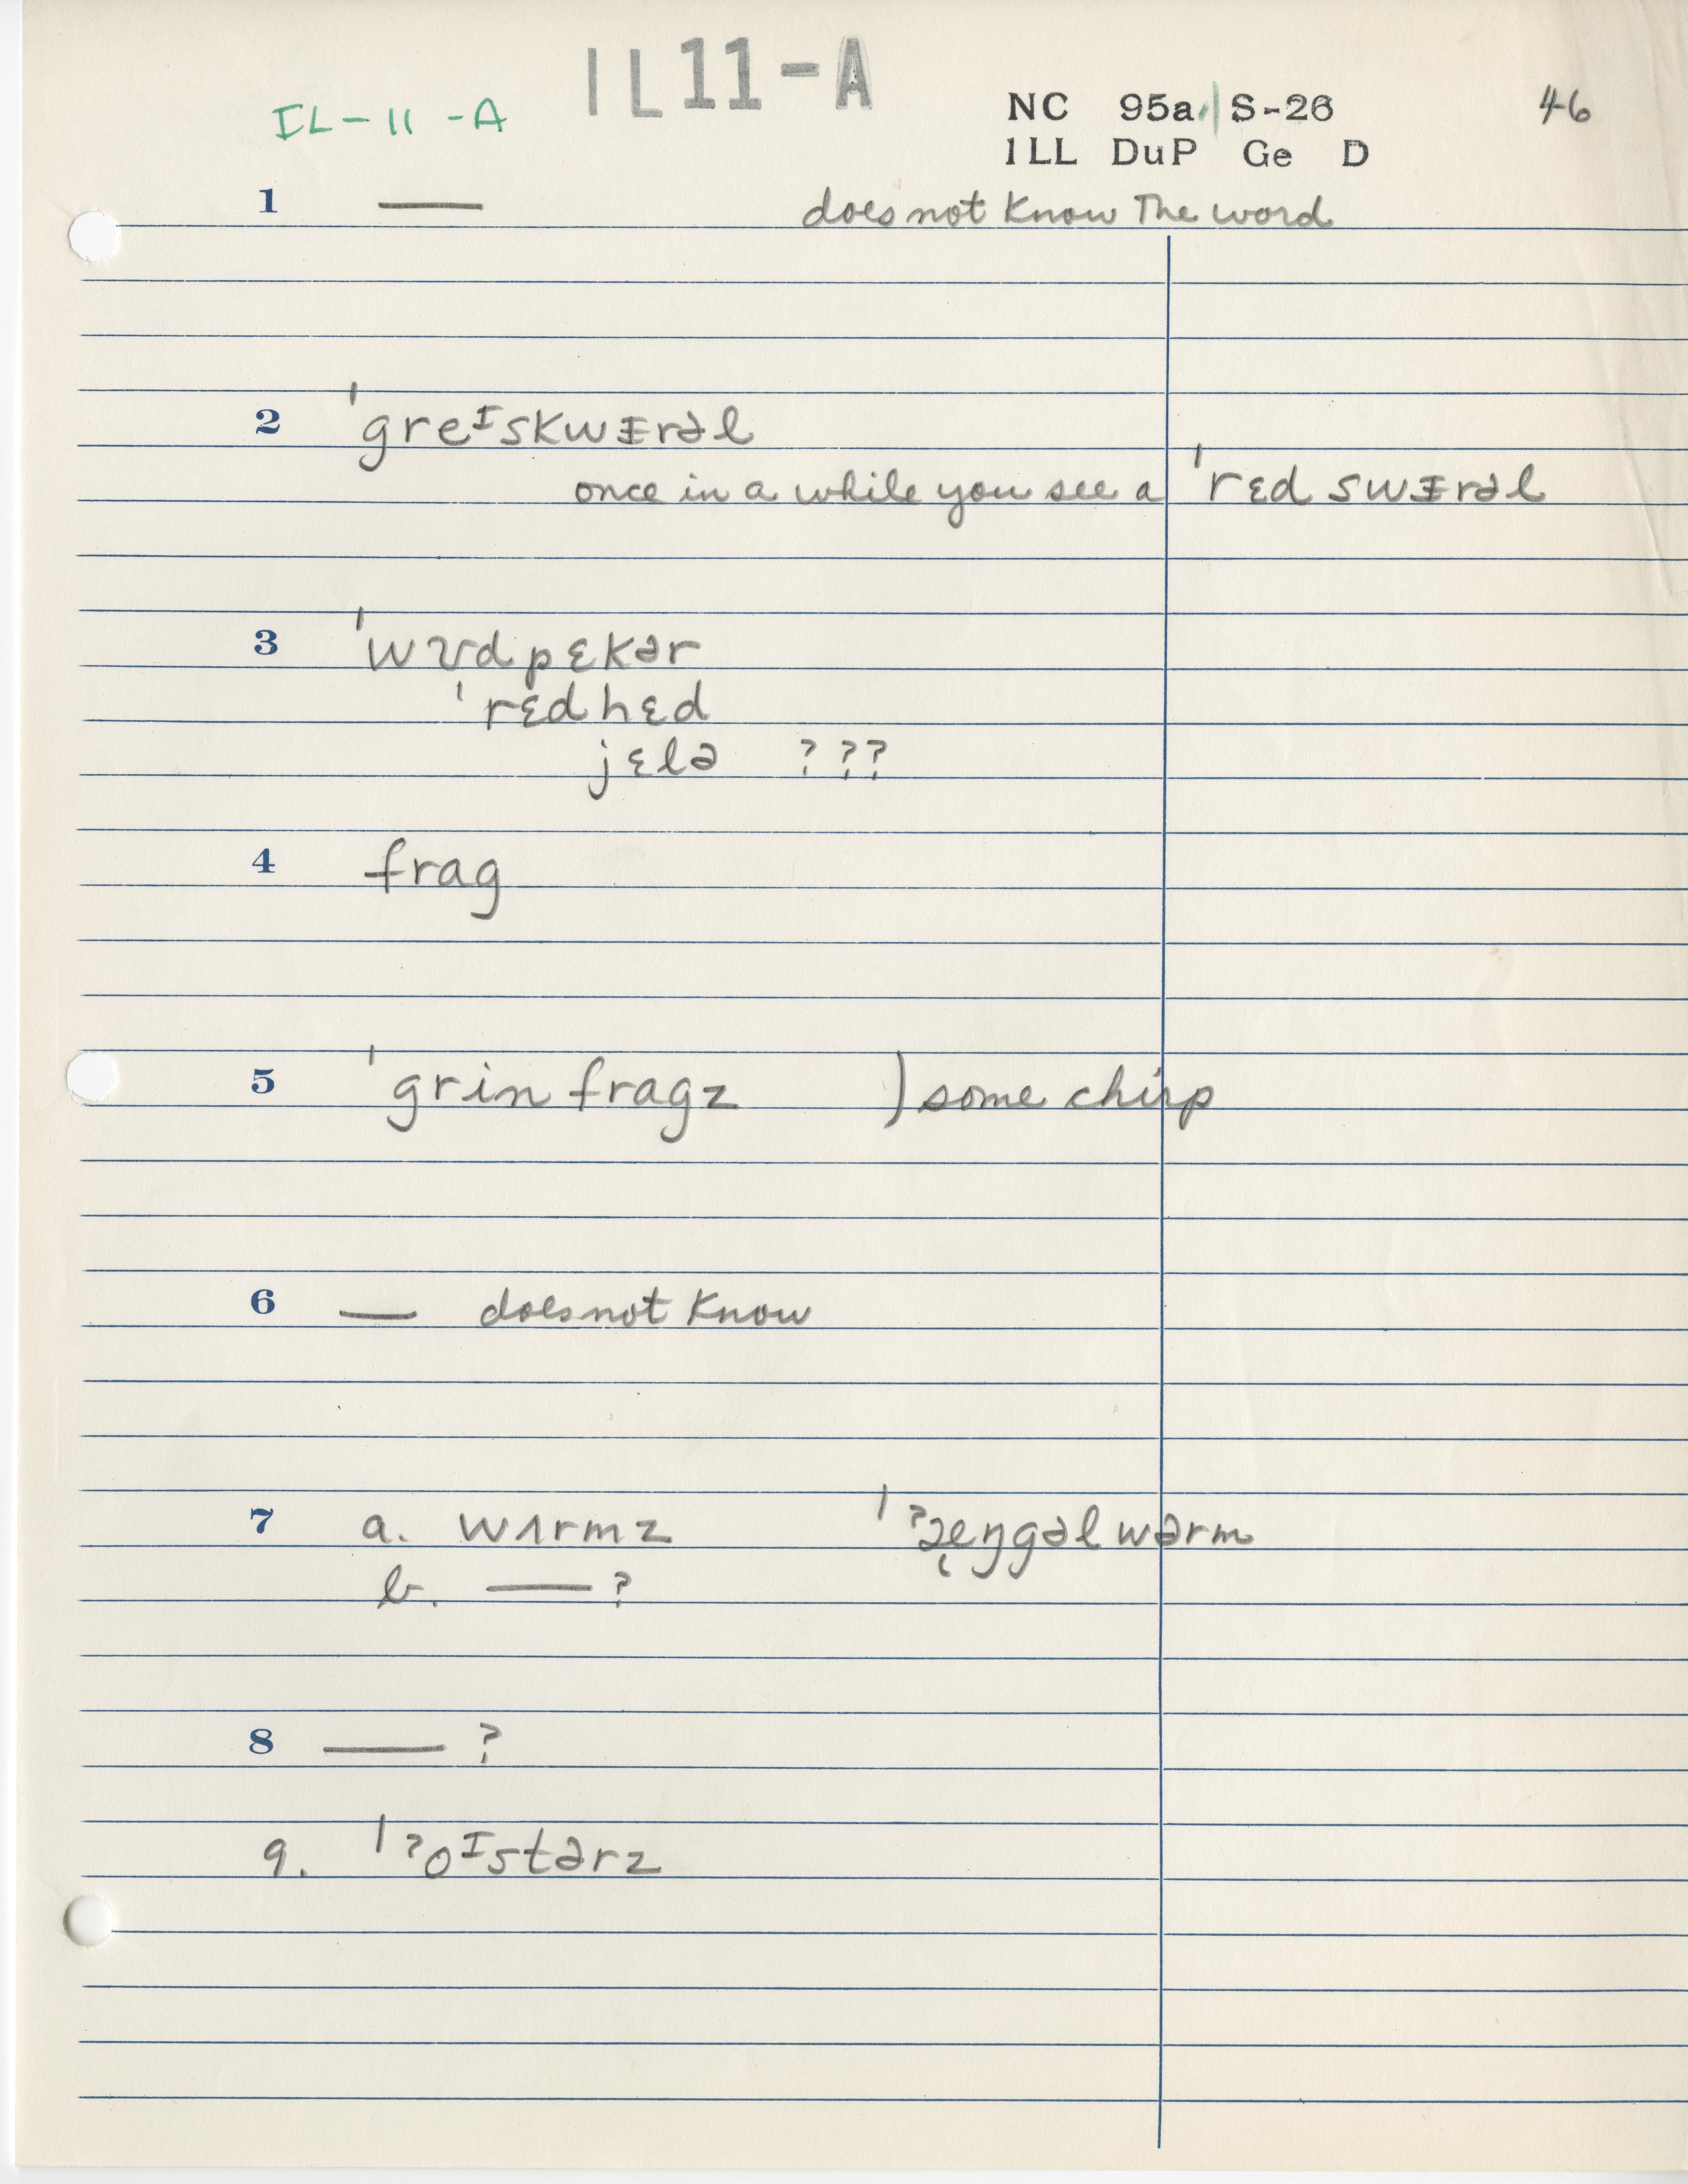 IL11-A
IL-11-A
NC 95a/S-26
46
ILL DuP Ge D
1 — does not know The word
2 ˈgreᴵskwᵻrəl
once in a while you see a ˈrɛd swᵻrəl
3 ˈwʊdpɛkər
ˈrɛdhɛd
jɛlə ???
4 frag
5 ˈgrin fragz ) some chirp
6 — does not know
7 a. wɜrmz ˈˀæ̨ŋgəlwərm
b. — ?
8 — ?
9. ˈˀoᴵstərz